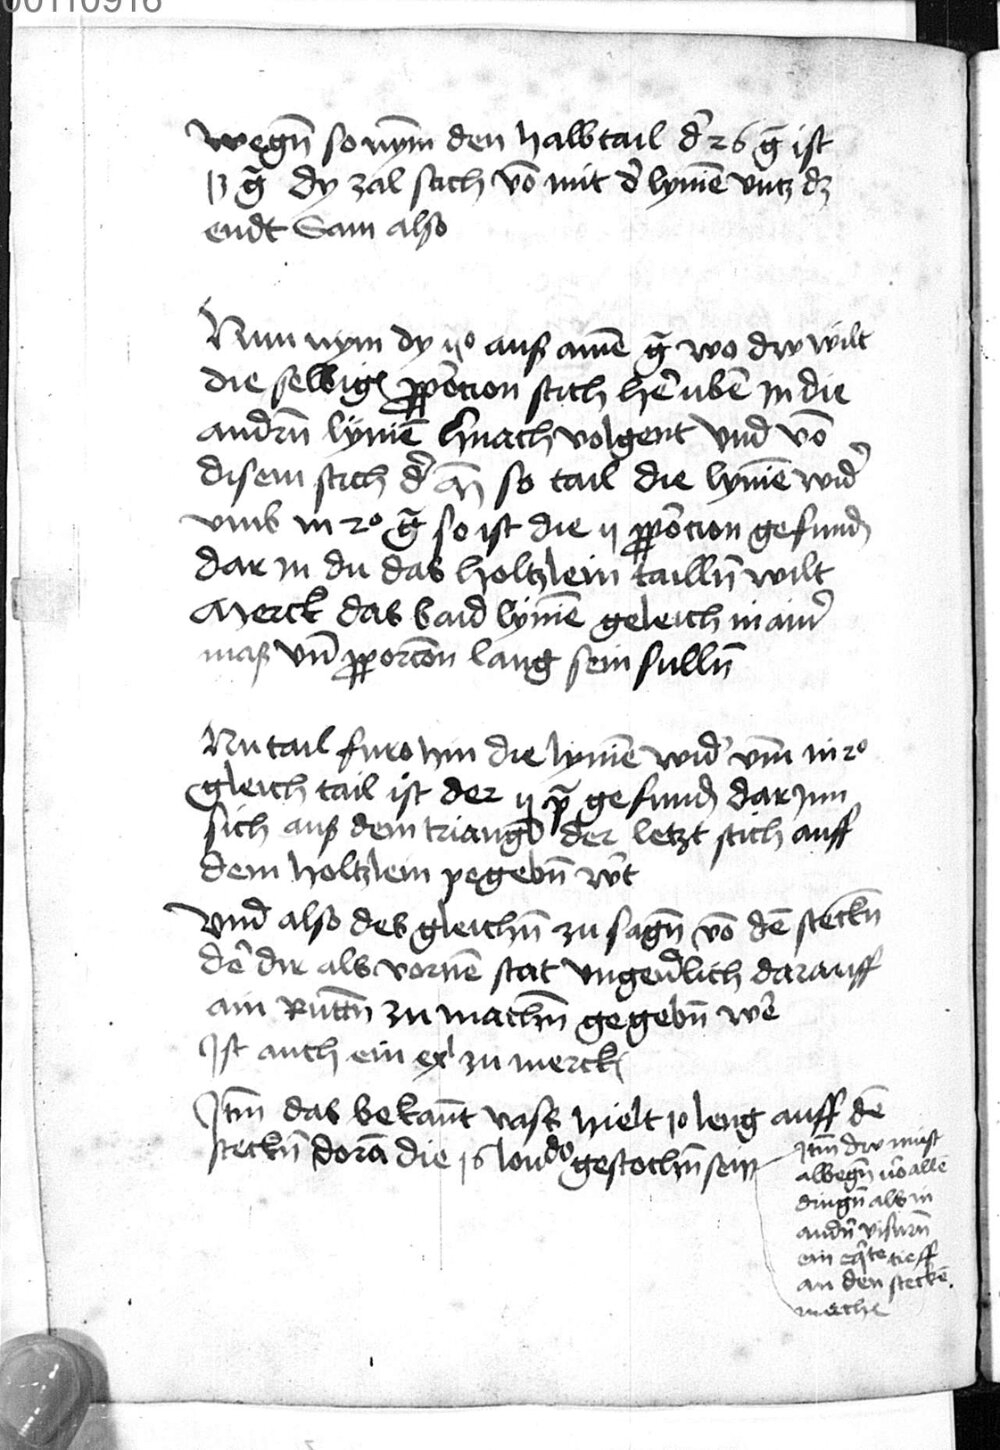 00110916
wegn̄ so nym̄ den halbtail d' 26 g̃ ist
13 g̃ dy zal stich vō mit d' lyniē vntz dz
endt Sam also
Nun nym dy 110 auß ainē g̃ wo dw wilt
die selbig proporcion stich he' ubē in die
andrn̄ lyniē hnach volgent Vnd vō
disem stich d' so tail die lyniē wid'
vmb in 20 g̃ so ist die ij proporcion gefund
dar in du das holtzlein tailln̄ wilt
Merck das baid lyniē geleich in ain'
maß vn̄ proporcōn lang sein sulln̄
Nu tail furo hin die lyniē wid' vm̄ in 20
gleich tail ist der ij p̄ gefund dar Inn
sich auß dem triangel der letzt stich auff
dem holtzlein pegebn̄ w't
Vnd also des gleichn̄ zu sagn̄ vō dē steckn̄
dē die als vornē stat vngeu'lich darauff
ain Ruttn̄ zu machn̄ gegebn̄ we'
Ist auch ein ex' zu merck
Itm̄ das bekan̄t vass hielt 10 leng auff dē
steckn̄ dorā die 16 gestochn̄ sein
Itm̄ dw must
albegn̄ vō allē
dingn̄ als in
andn̄ visirn̄
ein tieff
an den steckē
mache